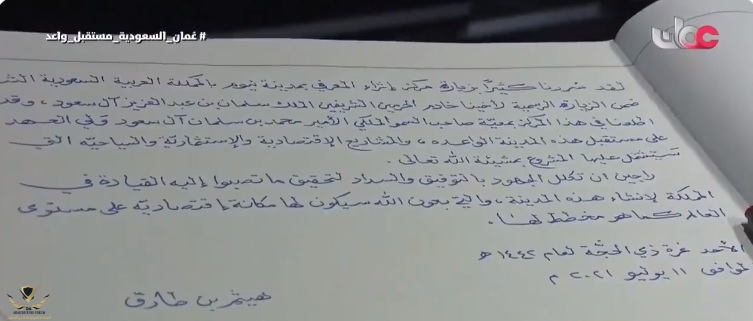 #عُمان_السعودية_مستقبل_واعد
عمان
لقد سررنا كثيراً بزيارة مركز إثراء المعرفي بمدينة نيوم بالمملكة العربية السعودية
ضمن الزيارة الرسمية لأخينا خادم الحرمين الشريفين الملك سلمان بن عبدالعزيز آل سعود، وقد
اطلعنا في هذا المركز بمعيّة صاحب السمو الملكي الأمير محمد بن سلمان آل سعود ولي العهد
على مستقبل هذه المدينة الواعده، والمشاريع الإقتصادية والإستثماريّة والسياحيّه التي
سيشتمل عليها المشروع بمشيئة الله تعالى.
راجين ان تكلل الجهود بالتوفيق والسداد لتحقيق ما تصبوا إليه القيادة في
المملكة لإنشاء هذه المدينة، والتي بعون الله سيكون لها مكانة إقتصاديّه على مستوى
العالم كما هو مخطط لها.
الأحد غرة ذي الحجّة لعام ١٤٤٢ هـ
١١ يوليو ٢٠٢١ م
هيثم بن طارق